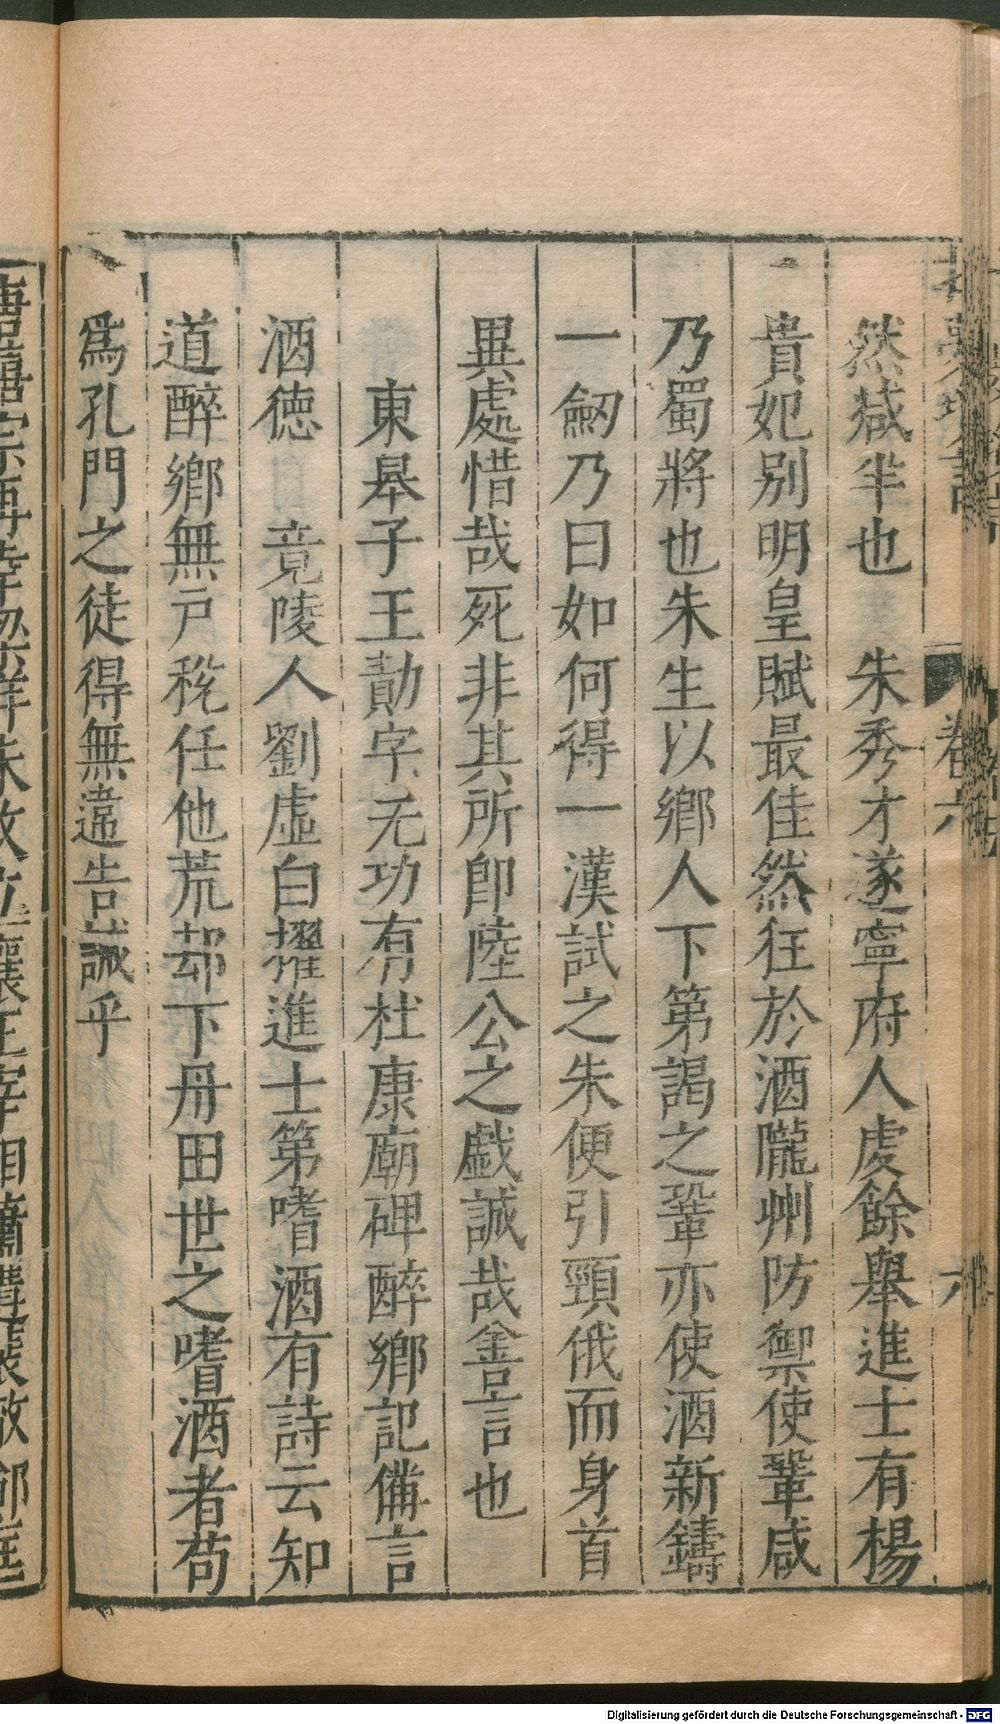 然減半也　朱秀才遂寧府人虔餘舉進士有楊
貴妃别明皇賦最佳然狂於酒隴州防禦使鞏咸
乃蜀將也朱生以鄉人下第謁之鞏亦使酒新鑄
一劒乃曰如何得一漢試之朱便引頸俄而身首
異處惜哉死非其所卽陸公之戲誠哉善言也
東皋子王勣字无功有杜康廟碑醉鄉記備言
酒徳　竟陵人劉虛白擢進士第嗜酒有詩云知
道醉鄉無戸稅任他荒却下丹田世之嗜酒者苟
爲孔門之徒得無違告誡乎
卷六
六
Digitalisierung gefördert durch die Deutsche Forschungsgemeinschaft - DFG